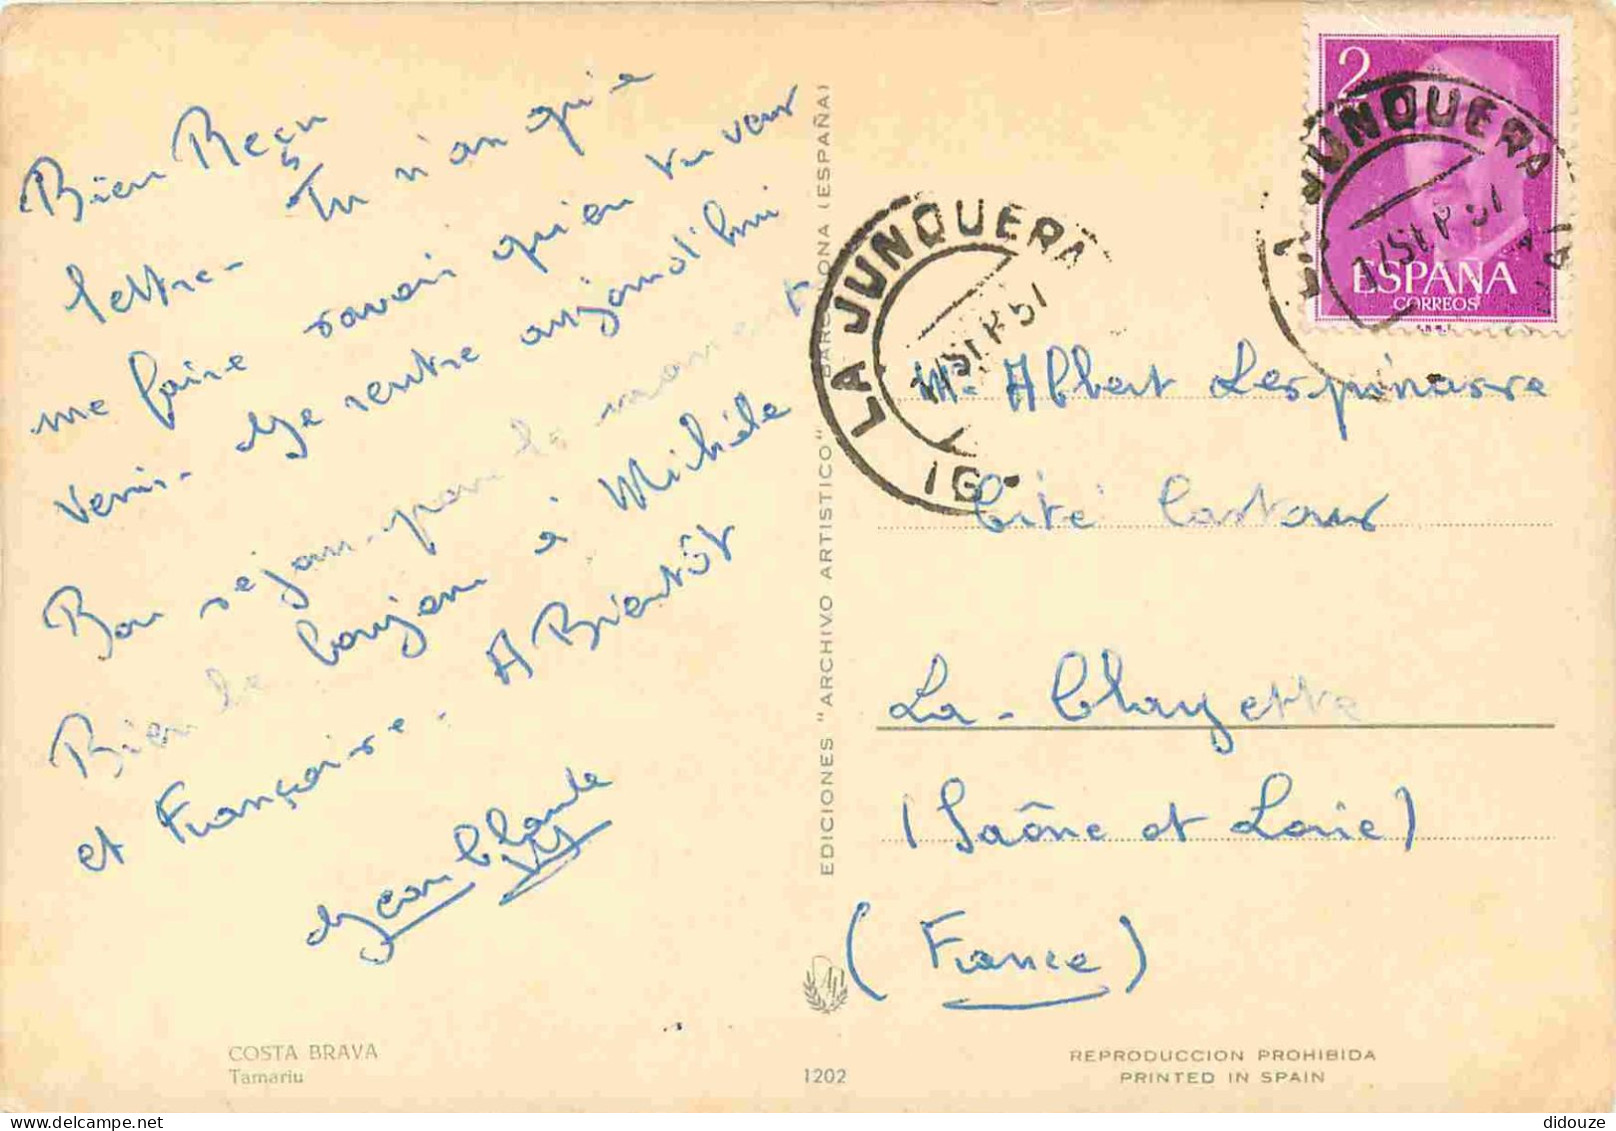 Bien Reçu
lettre - Tu n'as qu'à
me faire savoir qu'en tu veux
venir - Je rentre aujourd'hui
Bon séjour pour le moment
Bien le bonjour à Michèle
et Françoise. A Bientôt
Jean Claude
COSTA BRAVA
Tamariu
EDICIONES "ARCHIVO ARTISTICO" BARCELONA (ESPAÑA)
1202
2
ESPAÑA
CORREOS
LA JUNQUERA
LA JUNQUERA
Mr Albert Lespinasse
Cité Castors
La - Clayette
(Saône et Loire)
(France)
REPRODUCCION PROHIBIDA
PRINTED IN SPAIN
didouze